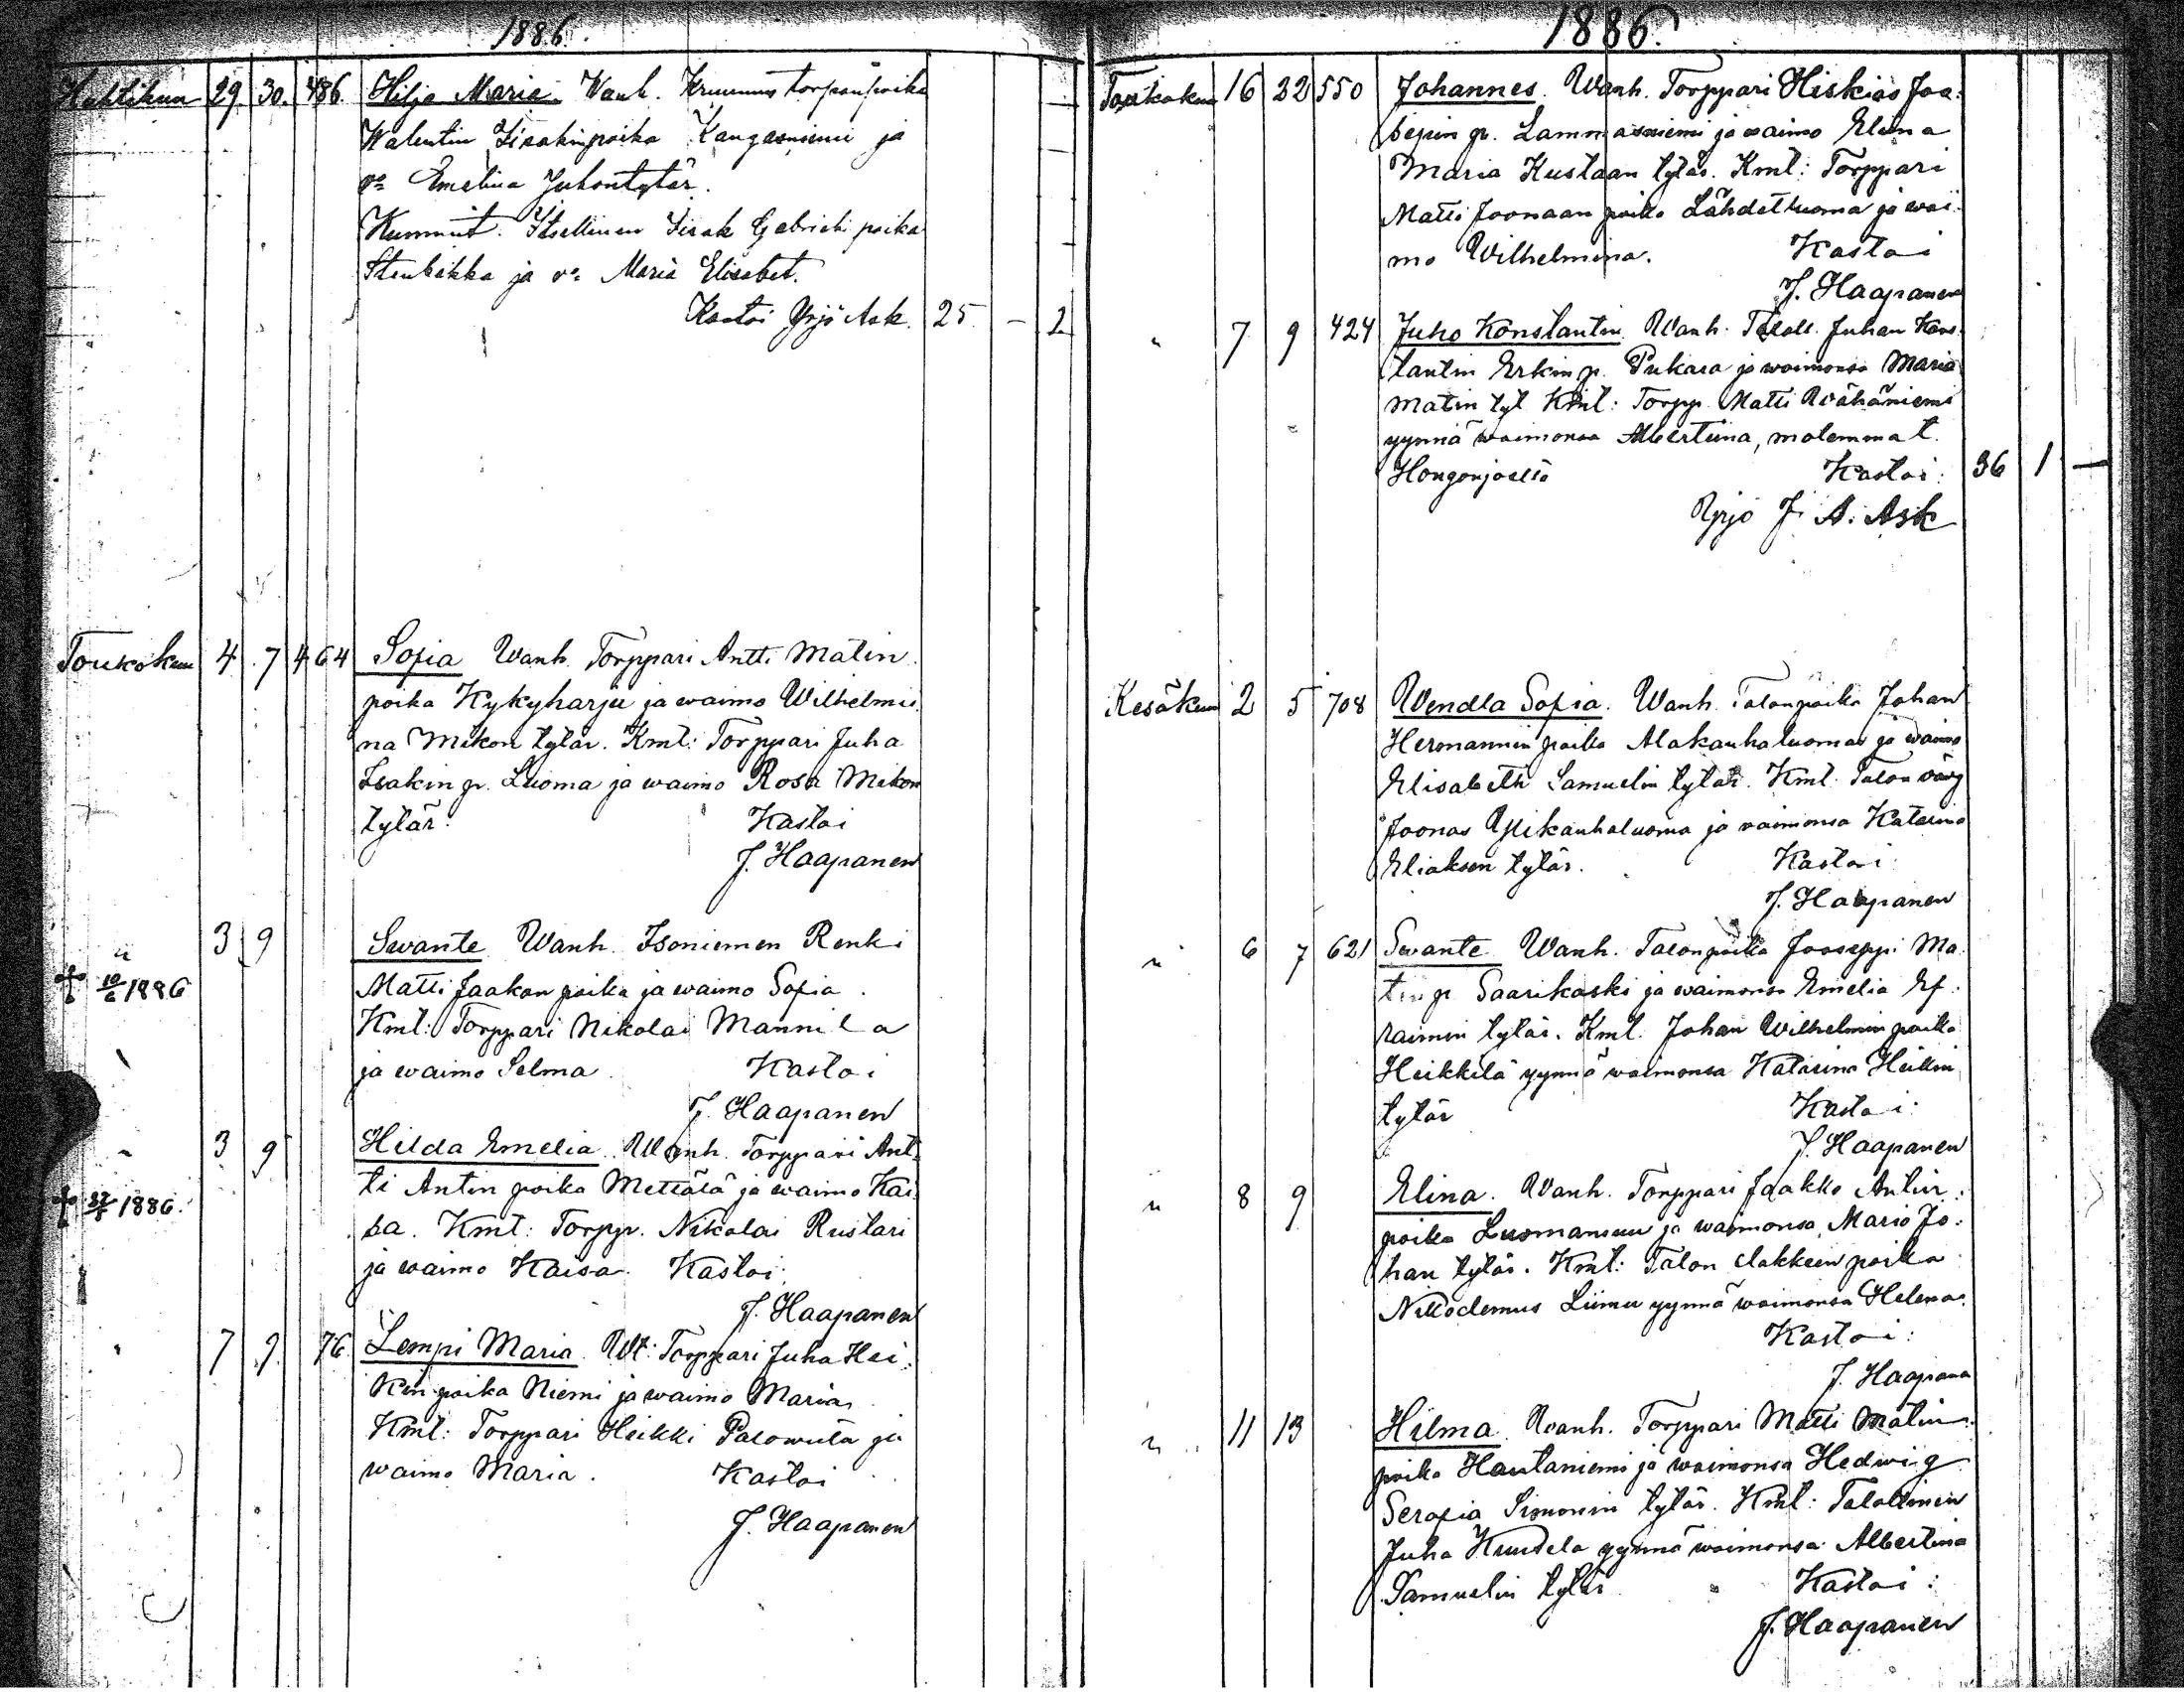 1886.
Huhtikuu 29 30. 486. Hilja Maria. Wanh. Kruunun torpanpoika
Walentin Iisakinpoika Kangasniemi ja
v:o Emeliina Juhontytär.
Kummit. Itsellinen Iisak Gabrieli poika
Stenbakka ja v:o Maria Elisabet.
Kastoi Yrjö Ask. 25 – 2
Toukokuu 4 7 464 Sofia Wanh. Torppari Antti Matin
poika Kykyharju ja waimo Wilhelmii
na Mikon tytär. Kmt: Torppari Juha
Isakin p. Luoma ja waimo Rosa Mikon
tytär. Kastoi
J. Haapanen
" 3 9 Swante Wanh. Isoniemen Renki
† 10/6 1886 Matti Jaakon poika ja waimo Sofia.
Kmt: Torppari Nikolai Mannila
ja waimo Selma. Kastoi
J. Haapanen
" 3 9 Hilda Emelia. Wanh. Torppari Ant-
† 1886. ti Antin poika Metsälä ja waimo Kai
sa. Kmt: Torpp. Nikolai Rustari
ja waimo Kaisa. Kastoi:
J. Haapanen
" 7 9. 76. Lempi Maria. Wt: Torppari Juha Hei:
kin poika Niemi ja waimo Maria.
Kmt: Torppari Heikki ja
waimo Maria. Kastoi
J. Haapanen
1886.
Toukokuu 16 22 550 Johannes. Wanh. Torppari Hiskias Joo:
sepin p. Lammasniemi ja waimo Elina
Maria Kustaan tytär. Kmt: Torppari
Matti Joonaan poika Lähdetluoma ja wai
mo Wilhelmina. Kastoi
J. Haapanen
" 7 9 424 Juho Konstantin. Wanh. Taloll. Juhan Kons
tantin Erkin p. Pukara ja waimonsa Maria
Matin tyt Kmt: Torpp. Matti Wähäniemi
yynnä waimonsa Albertiina, molemmat.
Hongonjoella Kastoi: 36 1 —
Yrjö J. A. Ask
Kesäkuu 2 5 708 Wendla Sofia. Wanh. Talonpoika Johan
Hermannin poika Alakauhaluoma ja waimo
Elisabeth Samuelin tytär. Kmt. Talon vävy
Joonas Ylikauhaluoma ja vaimonsa Katarina
Eliaksen tytär. Kastoi:
J. Haapanen
" 6 7 621 Swante Wanh. Talonpoika Jooseppi Ma
tin p. Saarikoski ja waimonsa Emelia Ef:
raimin tytär. Kmt. Johan Wilhelmin poika
Heikkilä yynnä waimonsa Katarina Heikin
tytär Kastoi:
J. Haapanen
" 8 9 Elina. Wanh. Torppari Jaakko Antin
poika Luomansuu ja waimonsa Maria Jo:
han tytär. Kmt: Talon poika
Nikodemus Liimu yynnä waimonsa Helena.
Kastoi:
J. Haapanen
" 11 13 Hilma. Wanh. Torppari Matti Matin
poika Hautaniemi ja waimonsa Hedwig
Serafia Simonin tytär. Kmt: Talollinen
Juha yynnä waimonsa Albertina
Samuelin tytär. Kastoi:
J. Haapanen